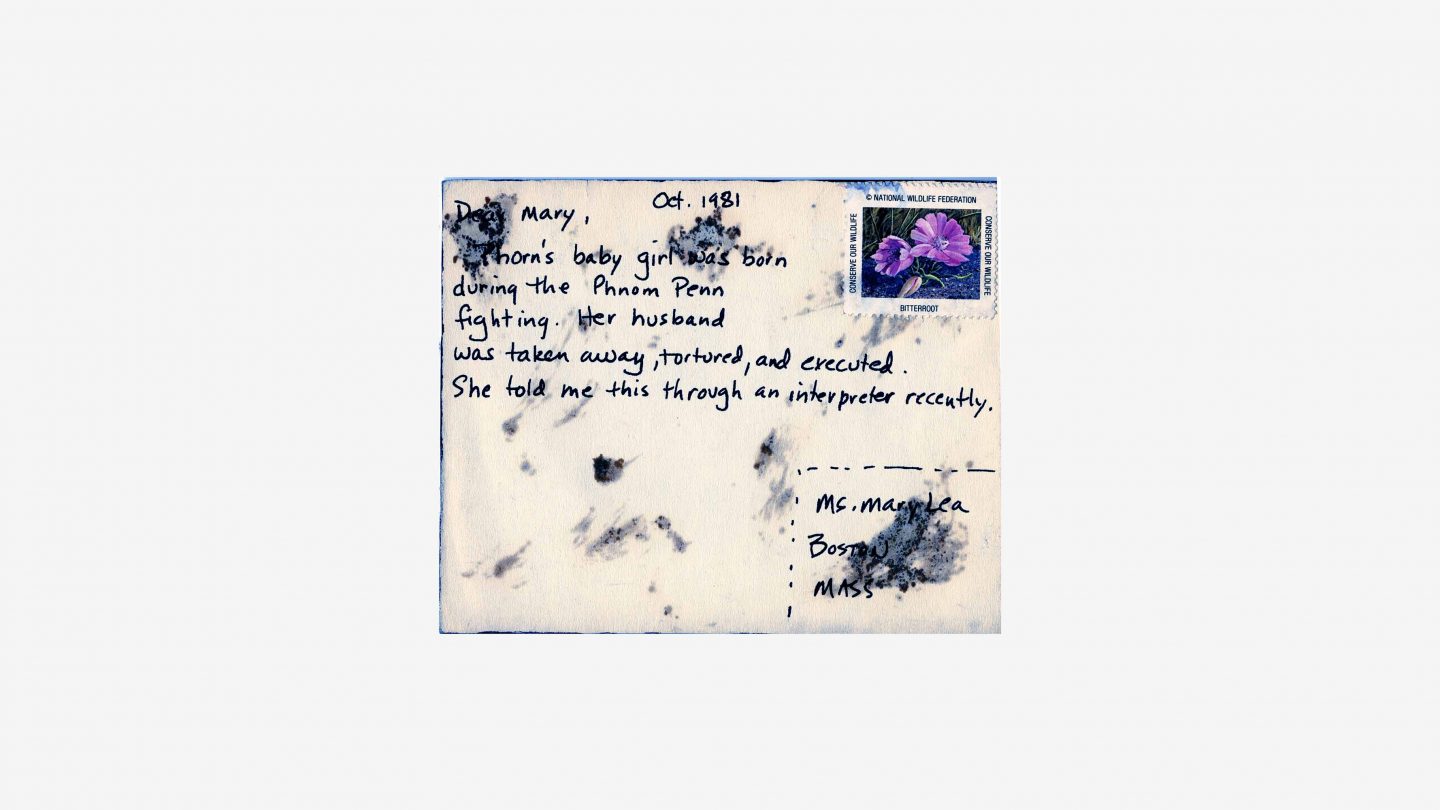 Oct. 1981
Dear Mary,
baby girl was born
during the Phnom Penn
fighting. Her husband
was taken away, tortured, and executed.
She told me this through an interpreter recently.
© NATIONAL WILDLIFE FEDERATION
CONSERVE OUR WILDLIFE
CONSERVE OUR WILDLIFE
BITTERROOT
Ms. Mary Lea
BOSTON
MASS